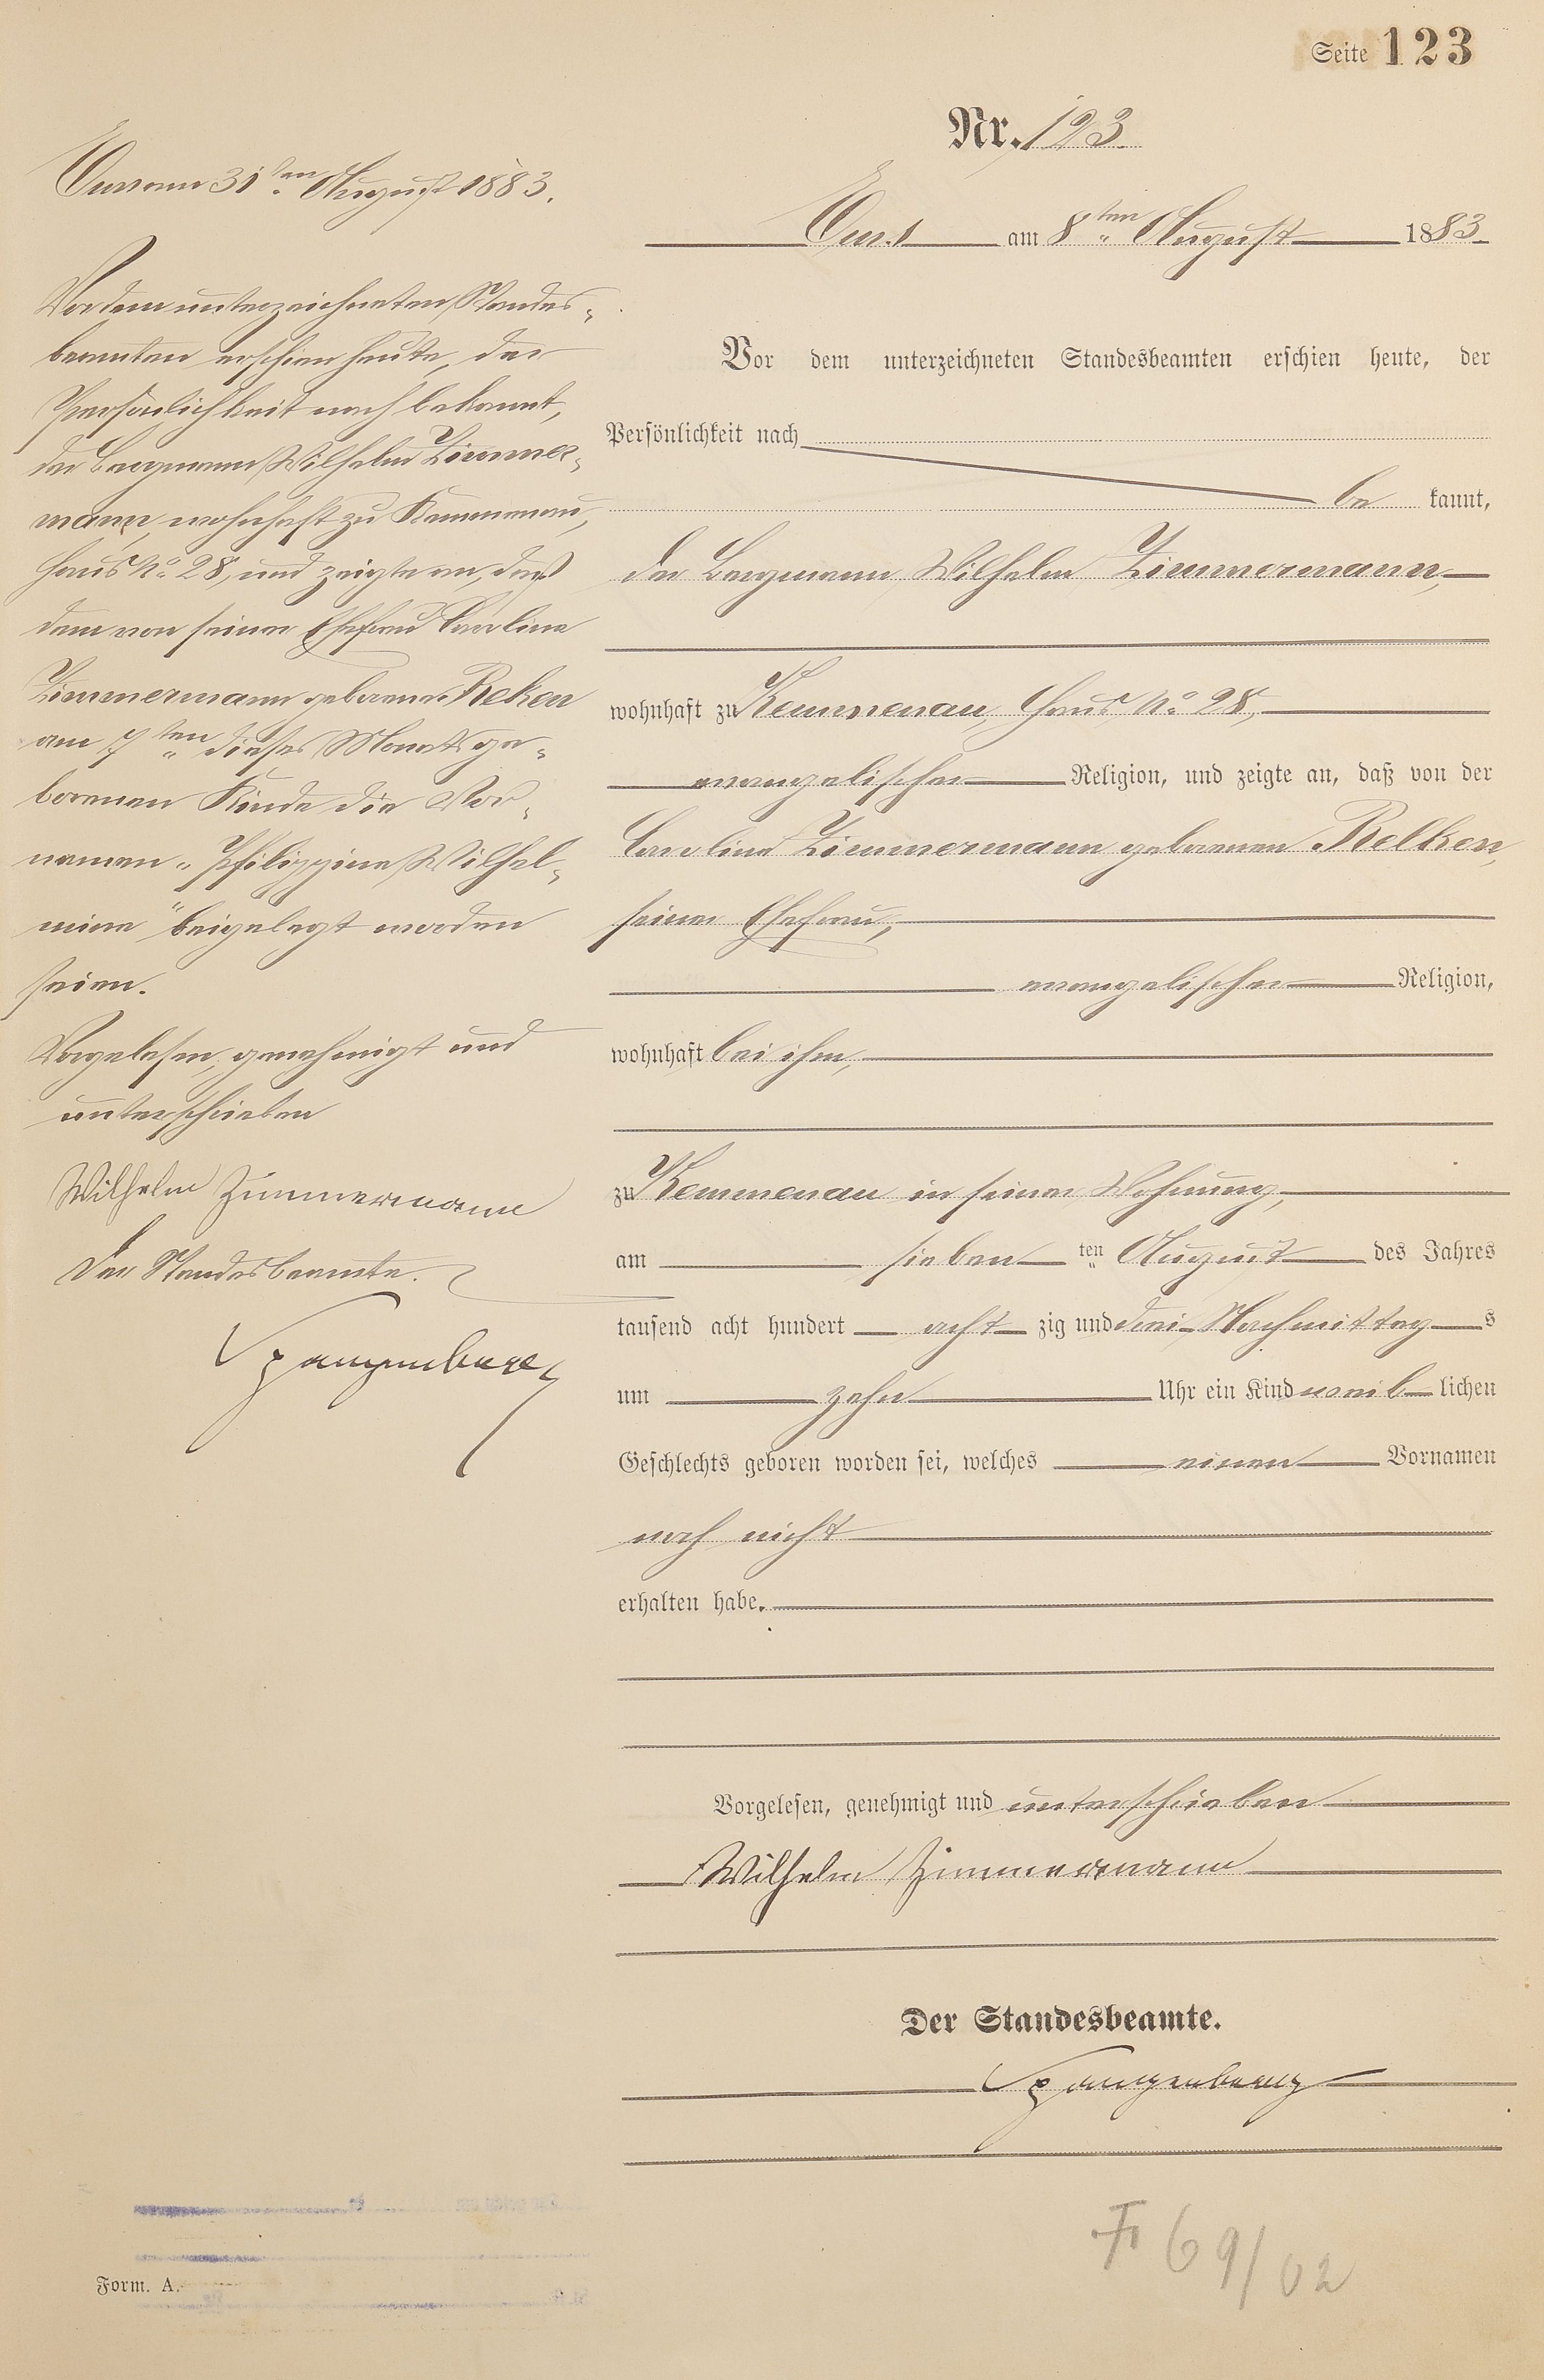 Seite 123
Nr. 123.
Ems am 8ten August 1883.
Vor dem unterzeichneten Standesbeamten erschien heute, der
Persönlichkeit nach
be kannt,
der Bergmann Wilhelm Zimmermann,
wohnhaft zu Kemmenau, Haus No. 28,
evangelischer Religion, und zeigte an, daß von der
Caroline Zimmermann geborenen Relken,
seiner Ehefrau,
evangelischer Religion,
wohnhaft bei ihm,
zu Kemmenau in seiner Wohnung,
am sieben ten August des Jahres
tausend acht hundert acht zig und drei Nachmittag s
um zehn Uhr ein Kind weib lichen
Geschlechts geboren worden sei, welches einen Vornamen
noch nicht
erhalten habe.
Vorgelesen, genehmigt und unterschrieben
Wilhelm Zimmermann
Der Standesbeamte.
Spangenberg
Ems am 31ten August 1883.
Vor dem unterzeichneten Standes-
beamten erschien heute, der
Persönlichkeit nach bekannt,
der Bergmann Wilhelm Zimmer-
mann, wohnhaft zu Kemmenau,
Haus No. 28, und zeigte an, daß
dem von seiner Ehefrau Caroline
Zimmermann geborene Reken
am 7ten dieses Monats ge-
borenen Kinde die Vor-
namen „Philippine Wilhel-
mine" beigelegt worden
seien.
Vorgelesen, genehmigt und
unterschrieben
Wilhelm Zimmermann
Der Standesbeamte.
Spangenberg
F 69/02
Form. A.